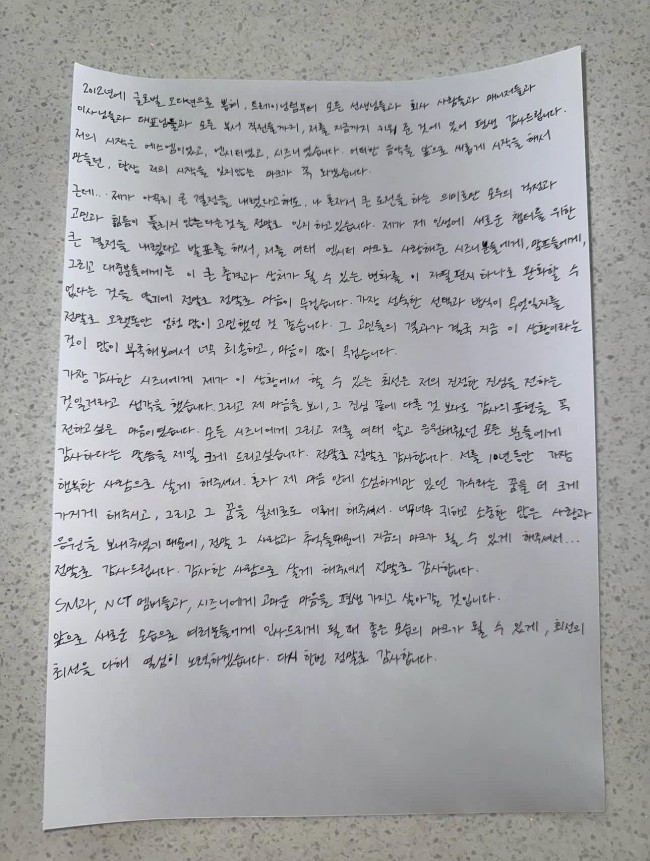 2012년에 글로벌 오디션으로 뽑혀, 트레이닝팀부터 모든 선생님들과 회사 사람들과 매니저들과
이사님들과 대표님들과 모든 부서 직원들까지, 저를 지금까지 키워 준 것에 있어 평생 감사드립니다.
저의 시작은 에스엠이었고, 엔시티였고, 시즈니였습니다. 어떠한 음악을 앞으로 새롭게 시작을 해서
만들던, 항상 저의 시작을 잊지않는 마크가 꼭 되겠습니다.
근데... 제가 아무리 큰 결정을 내렸다고해도, 나 혼자서 큰 도전을 하는 의미로만 모두의 걱정과
고민과 힘듦이 풀리지 않는다는것을 정말로 인지 하고있습니다. 제가 제 인생에 새로운 챕터를 위한
큰 결정을 내렸다고 발표를 해서, 저를 여태 엔시티 마크로 사랑해준 시즈니분들에게, 맘프들에게,
그리고 대중분들에게는 이 큰 충격과 상처가 될 수 있는 변화를 이 자필편지 하나로 완화할 수
없다는 것을 알기에 정말로 정말로 마음이 무겁습니다. 가장 성숙한 선택과 방식이 무엇일지를
정말로 오랫동안 엄청 많이 고민했던 것 같습니다. 그 고민들의 결과가 결국 지금 이 상황이라는
것이 많이 부족해보여서 너무 죄송하고, 마음이 많이 무겁습니다.
가장 감사한 시즈니에게 제가 이 상황에서 할 수 있는 최선은 저의 진정한 진심을 전하는
것일거라고 생각을 했습니다. 그리고 제 마음을 보니, 그 진심 끝에 다른 것 보다도 감사의 표현을 꼭
전하고싶은 마음이었습니다. 모든 시즈니에게 그리고 저를 여태 알고 응원해줬던 모든 분들에게
감사하다는 말씀을 제일 크게 드리고싶습니다. 정말로 정말로 감사합니다. 저를 10년동안 가장
행복한 사람으로 살게 해주셔서. 혼자 제 마음 안에 소심하게만 있던 가수라는 꿈을 더 크게
가지게 해주시고, 그리고 그 꿈을 실제로도 이루게 해주셔서. 너무너무 귀하고 소중한 많은 사랑과
응원을 보내주셨기 때문에, 정말 그 사랑과 추억들때문에 지금의 마크가 될 수 있게 해주셔서...
정말로 감사드립니다. 감사한 사람으로 살게 해주셔서 정말로 감사합니다.
SM과, NCT 멤버들과, 시즈니에게 고마운 마음을 평생 가지고 살아갈 것입니다.
앞으로 새로운 모습으로 여러분들에게 인사드리게 될 때 좋은 모습의 마크가 될 수 있게, 최선의
최선을 다해 열심히 노력하겠습니다. 다시 한번 정말로 감사합니다.